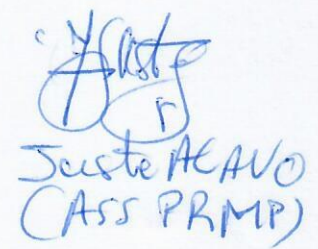 Juste AЄAVO
(ASS PRMP)